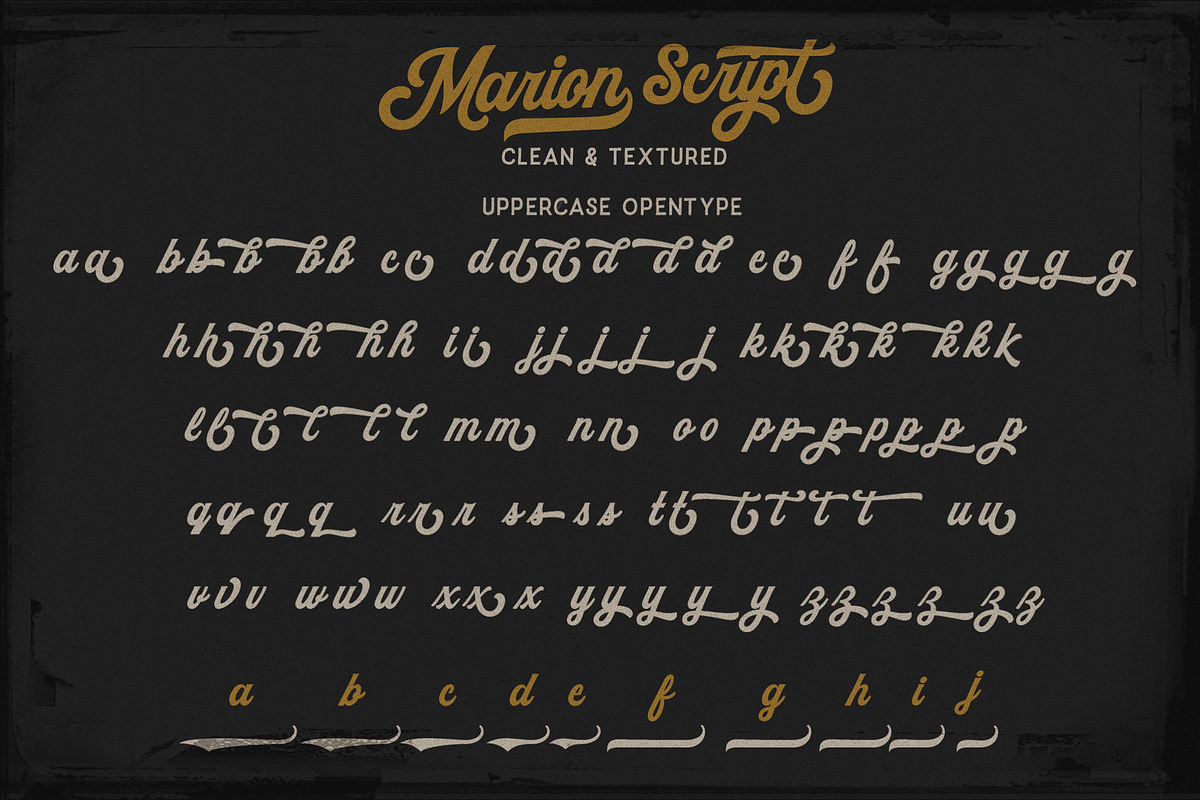 Marion Script
CLEAN & TEXTURED
UPPERCASE OPENTYPE
aa bbbbb cc dddddd ee ff ggggg
hhhhhh ii jjjjj kkkkkkk
llllll mm nn oo ppppppp
qqqq rrr ssss tttttt uu
vvv www xxx yyyyy zzzzzz
a b c d e f g h i j